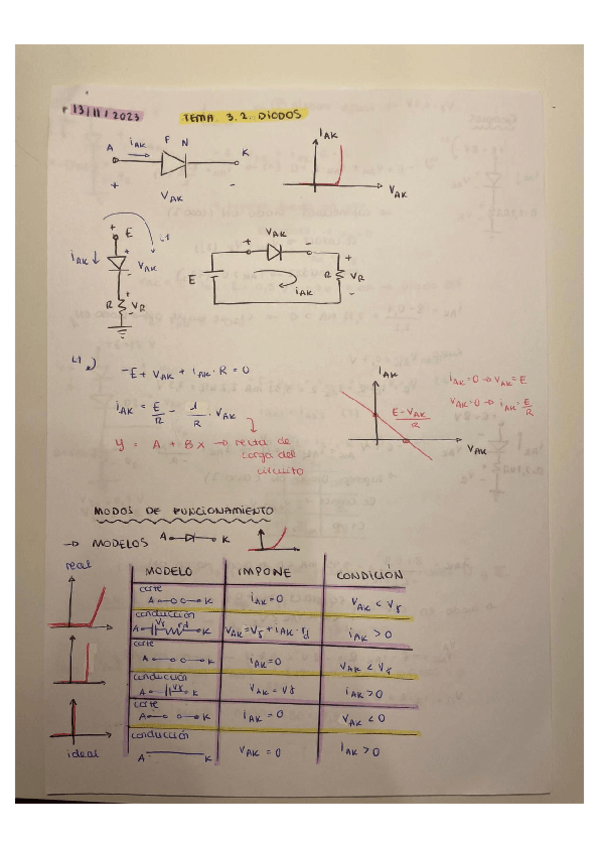 13/11/2023
TEMA 3.2. DIODOS
A iAK P N K
+ VAK -
iAK
VAK
+ E L1
iAK ↓ + VAK -
R + VR -
E + VAK - R + VR -
iAK
L1)
-E + VAK + iAK · R = 0
iAK = E/R - 1/R · VAK
Y = A + BX → recta de
carga del
circuito
iAK
E-VAK/R
VAK
iAK=0 → VAK=E
VAK=0 → iAK=E/R
MODOS DE FUNCIONAMIENTO
→ MODELOS A K
real
MODELO IMPONE CONDICIÓN
corte
A K iAK=0 VAK < Vγ
conducción
A Vγ rd K VAK=Vγ+iAK·rd iAK>0
corte
A K iAK=0 VAK < Vγ
conducción
A Vγ K VAK = Vγ iAK>0
corte
A K iAK=0 VAK<0
conducción
A K VAK=0 iAK>0
ideal